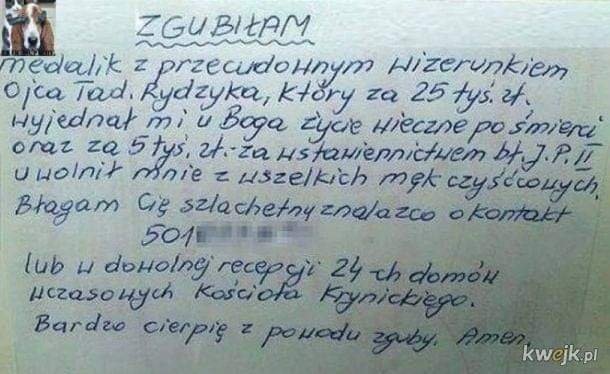 ZGUBIŁAM
medalik z przecudownym wizerunkiem
Ojca Tad. Rydzyka, który za 25 tyś. zł.
wyjednał mi u Boga życie wieczne po śmierci
oraz za 5 tyś. zł.- za wstawiennictwem bł. J.P. II
uwolnił mnie z wszelkich mąk czyśćcowych.
Błagam Cię szlachetny znalazco o kontakt
501
lub w dowolnej recepcji 24-ch domów
wczasowych Kościoła Krynickiego.
Bardzo cierpię z powodu zguby. Amen.
kwejk.pl